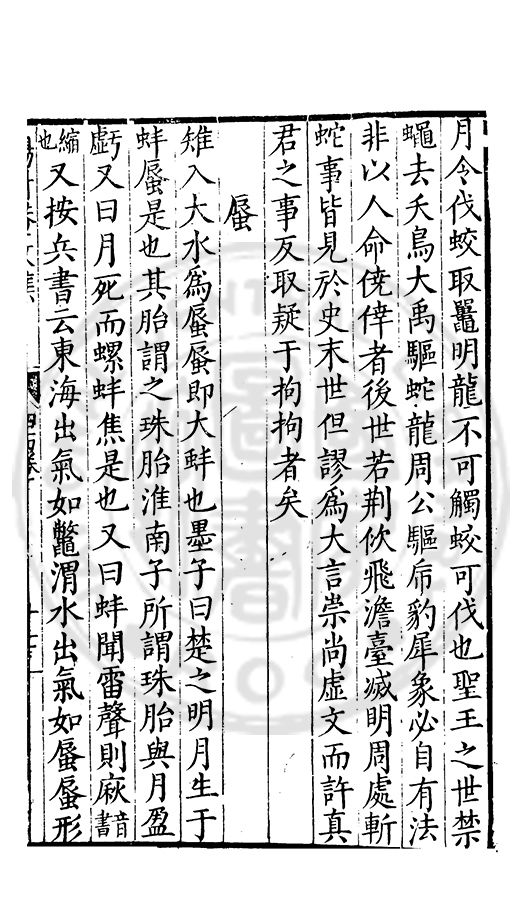 月令伐蛟取鼉明龍不可觸蛟可伐也聖王之世禁
蠅去夭鳥大禹驅蛇龍周公驅虎豹犀象必自有法
非以人命僥倖者後世若荆佽飛澹臺滅明周處斬
蛇事皆見於史末世但謬爲大言崇尚虛文而許真
君之事反取疑于拘拘者矣
蜃
雉入大水爲蜃蜃即大蚌也墨子曰楚之明月生于
蚌蜃是也其胎謂之珠胎淮南子所謂珠胎與月盈
虧又曰月死而螺蚌焦是也又曰蚌聞雷聲則㾭音書
縮也又按兵書云東海出氣如鼈渭水出氣如蜃蜃形